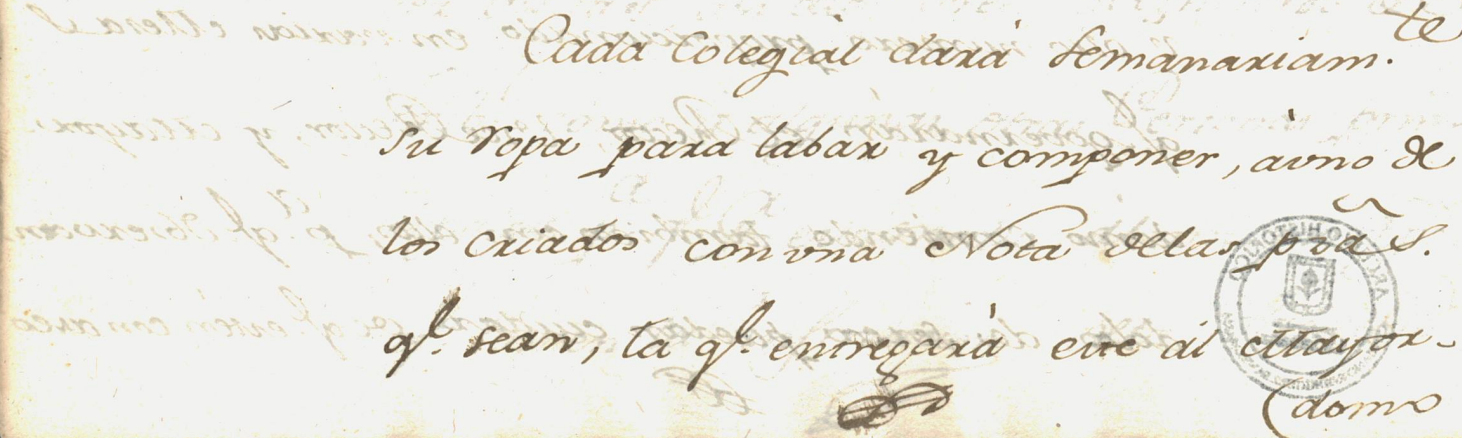 Cada Colegial dará Semanariam.te
su ropa para labar y componer, àuno de
los criados con vna Nota delas pzãS.
qe. sean, la qe. entregará este al Mayor-
(domo